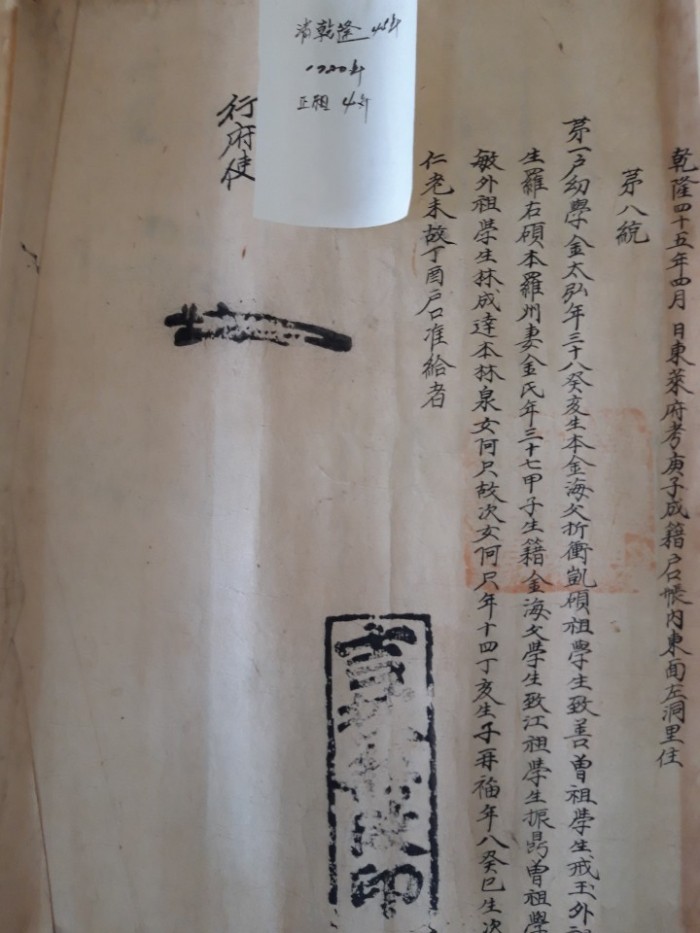 乾隆四十五年四月 日東萊府考庚子成籍戶帳內東面左洞里住
苐八統
苐一戶幼學金太弘年三十八癸亥生本金海父折衝凱碩祖學生致善曾祖學生戒玉外
生羅右碩本羅州妻金氏年三十七甲子生籍金海父學生致江祖學生振昻曾祖學
敏外祖學生林成達本林泉女何只故次女何只年十四丁亥生子再福年八癸巳生次
仁老未故丁酉戶口准給者
行府使
清乾隆 45年
1780年
正祖 4年
改印